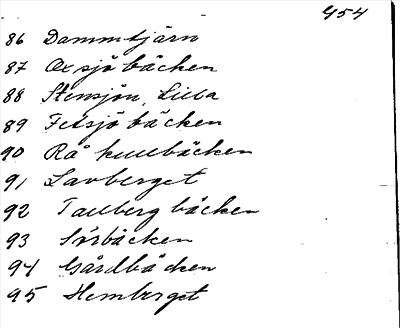 454
86 Dammtjärn
87 Oxsjöbäcken
88 Stensjön, Lilla
89 Fetsjöbäcken
90 Råkullbäcken
91 Lavberget
92 Tallbergbäcken
93 Sörbäcken
94 Gårdbäcken
95 Hemberget